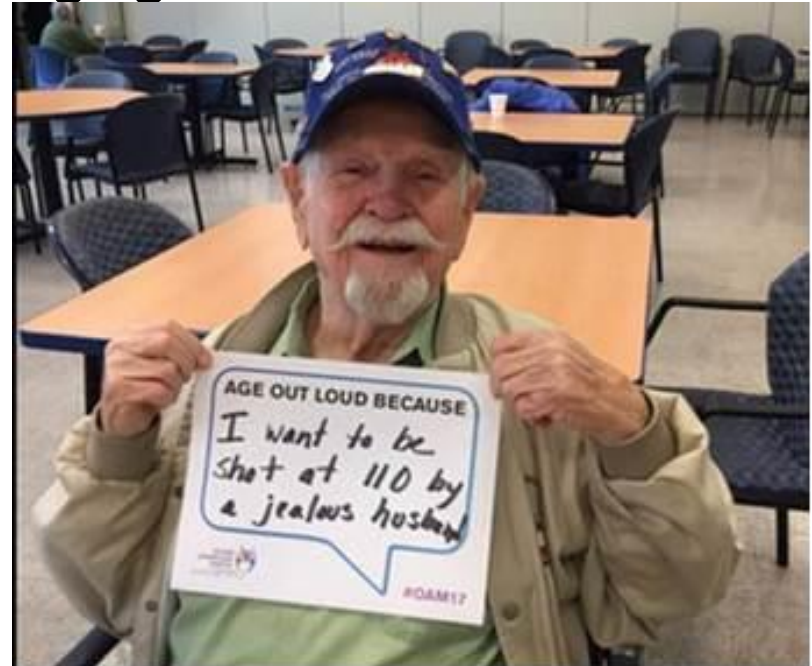 AGE OUT LOUD BECAUSE
I want to be
shot at 110 by
a jealous husband
#OAM17